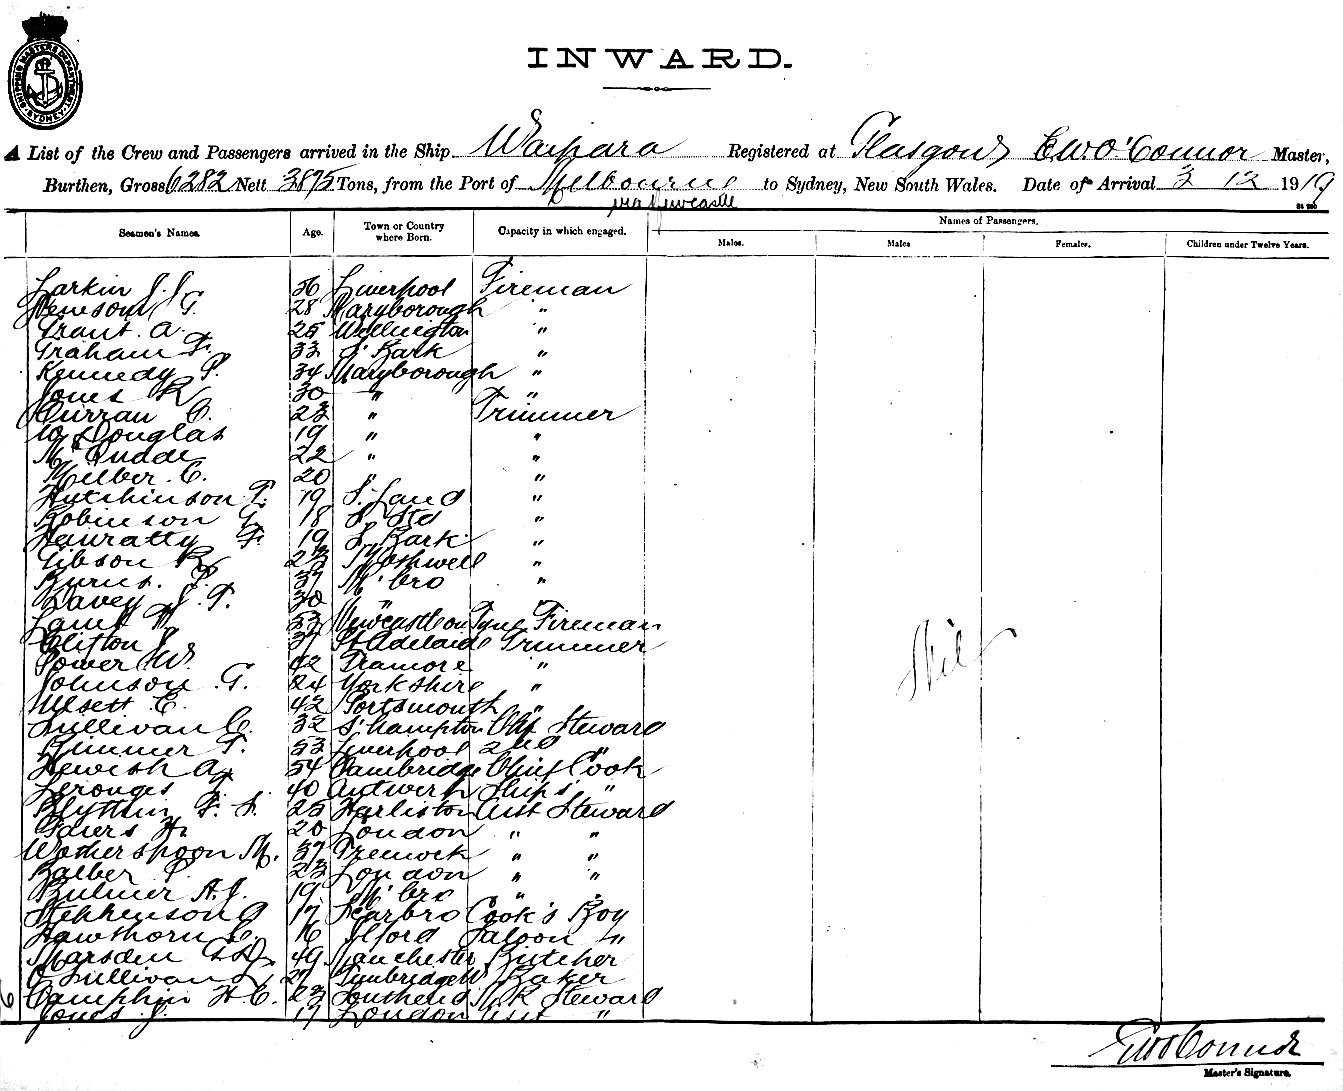 SHIPPING MASTERS DEPARTMENT SYDNEY
INWARD.
A List of the Crew and Passengers arrived in the Ship Waipara Registered at Glasgow E.W. O'Connor Master,
Burthen, Gross 6282 Nett 3895 Tons, from the Port of Melbourne to Sydney, New South Wales. Date of Arrival 3 12 1919
via Newcastle
Names of Passengers.
Seamen's Names. Age. Town or Country where Born. Capacity in which engaged. Males. Males Females. Children under Twelve Years.
Larkin J. J. 36 Liverpool Fireman
G. 28 Maryborough "
Grant A. 25 Wellington "
Graham F. 33 S' Bark "
Kennedy P. 34 Maryborough "
Jones R 30 " "
Curran F. 23 " Trimmer
W Douglas 19 " "
22 " "
Milber C. 20 "
Hutchinson T. 19 S. Land "
Robinson G. 18 "
Hanratty F. 19 S. Bark "
Gibson R 23 Mothwell "
Burns. P. 37 M'bro "
Davey J. T. 30 "
Lamb W 53 Newcastle on Tyne Fireman
Clifton J 37 Pt Adelaide Trimmer
Power W. 42 Tramore "
Johnson G. 24 Yorkshire "
Ulsett C. 42 Portsmouth "
Sullivan C. 32 S'hampton Chf Steward
T. 53 Liverpool 2nd "
Hewish A. 54 Cambridge Chief Cook
40 Antwerp Ship's "
Blythin F. S. 25 Harliston Asst Steward
H. 20 London " "
Wotherspoon M. 37 " "
Balber P. 23 London " "
Bulmer A. J. 19 M'bro " "
Stephenson 17 Scarbro Cook's Boy
Hawthorn C. 16 Ilford Saloon "
Marsden 49 Manchester Butcher
O'Sullivan 27 Tunbridge W Baker
Camphin H. C. 23 Southend Steward
Jones J. 17 London Asst "
Nil
E W O'Connor
Master's Signature.